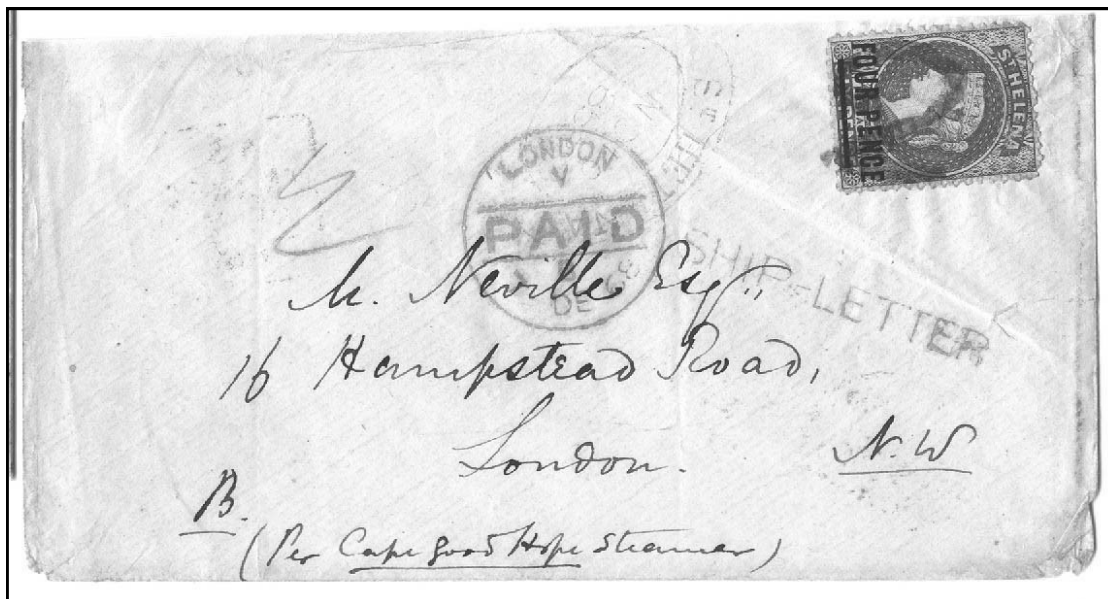 ST HELENA
FOUR PENCE
ST HE
LONDON
V
PAID
DE 68
SHIP-LETTER
M. Neville Esqr,
16 Hampstead Road,
London.
N.W
B.
(Per Cape Good Hope Steamer)